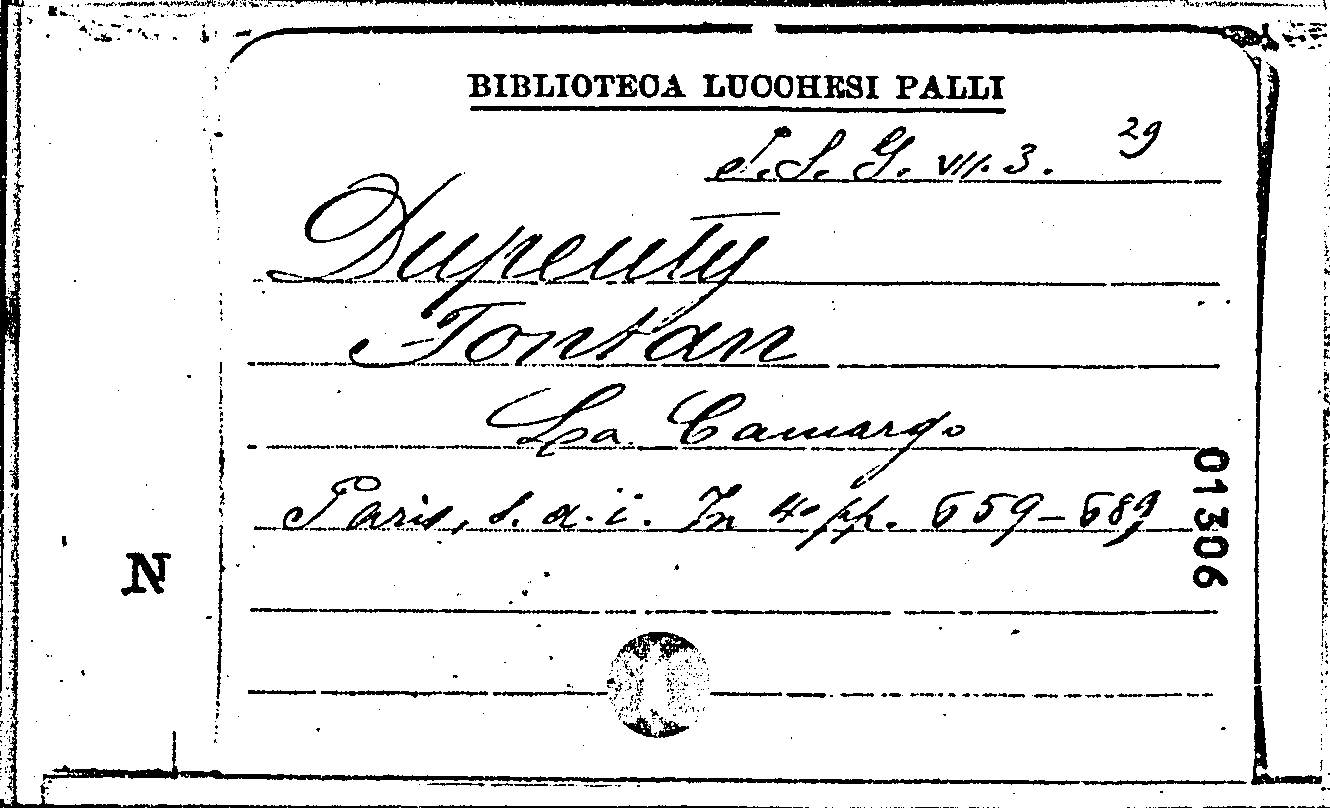 BIBLIOTECA LUCCHESI PALLI
P.S.G. VII. 3. 29
Dupeuty
Fontan
La Camargo
Paris, s. d. i. In 4° pp. 659-689
01306
N